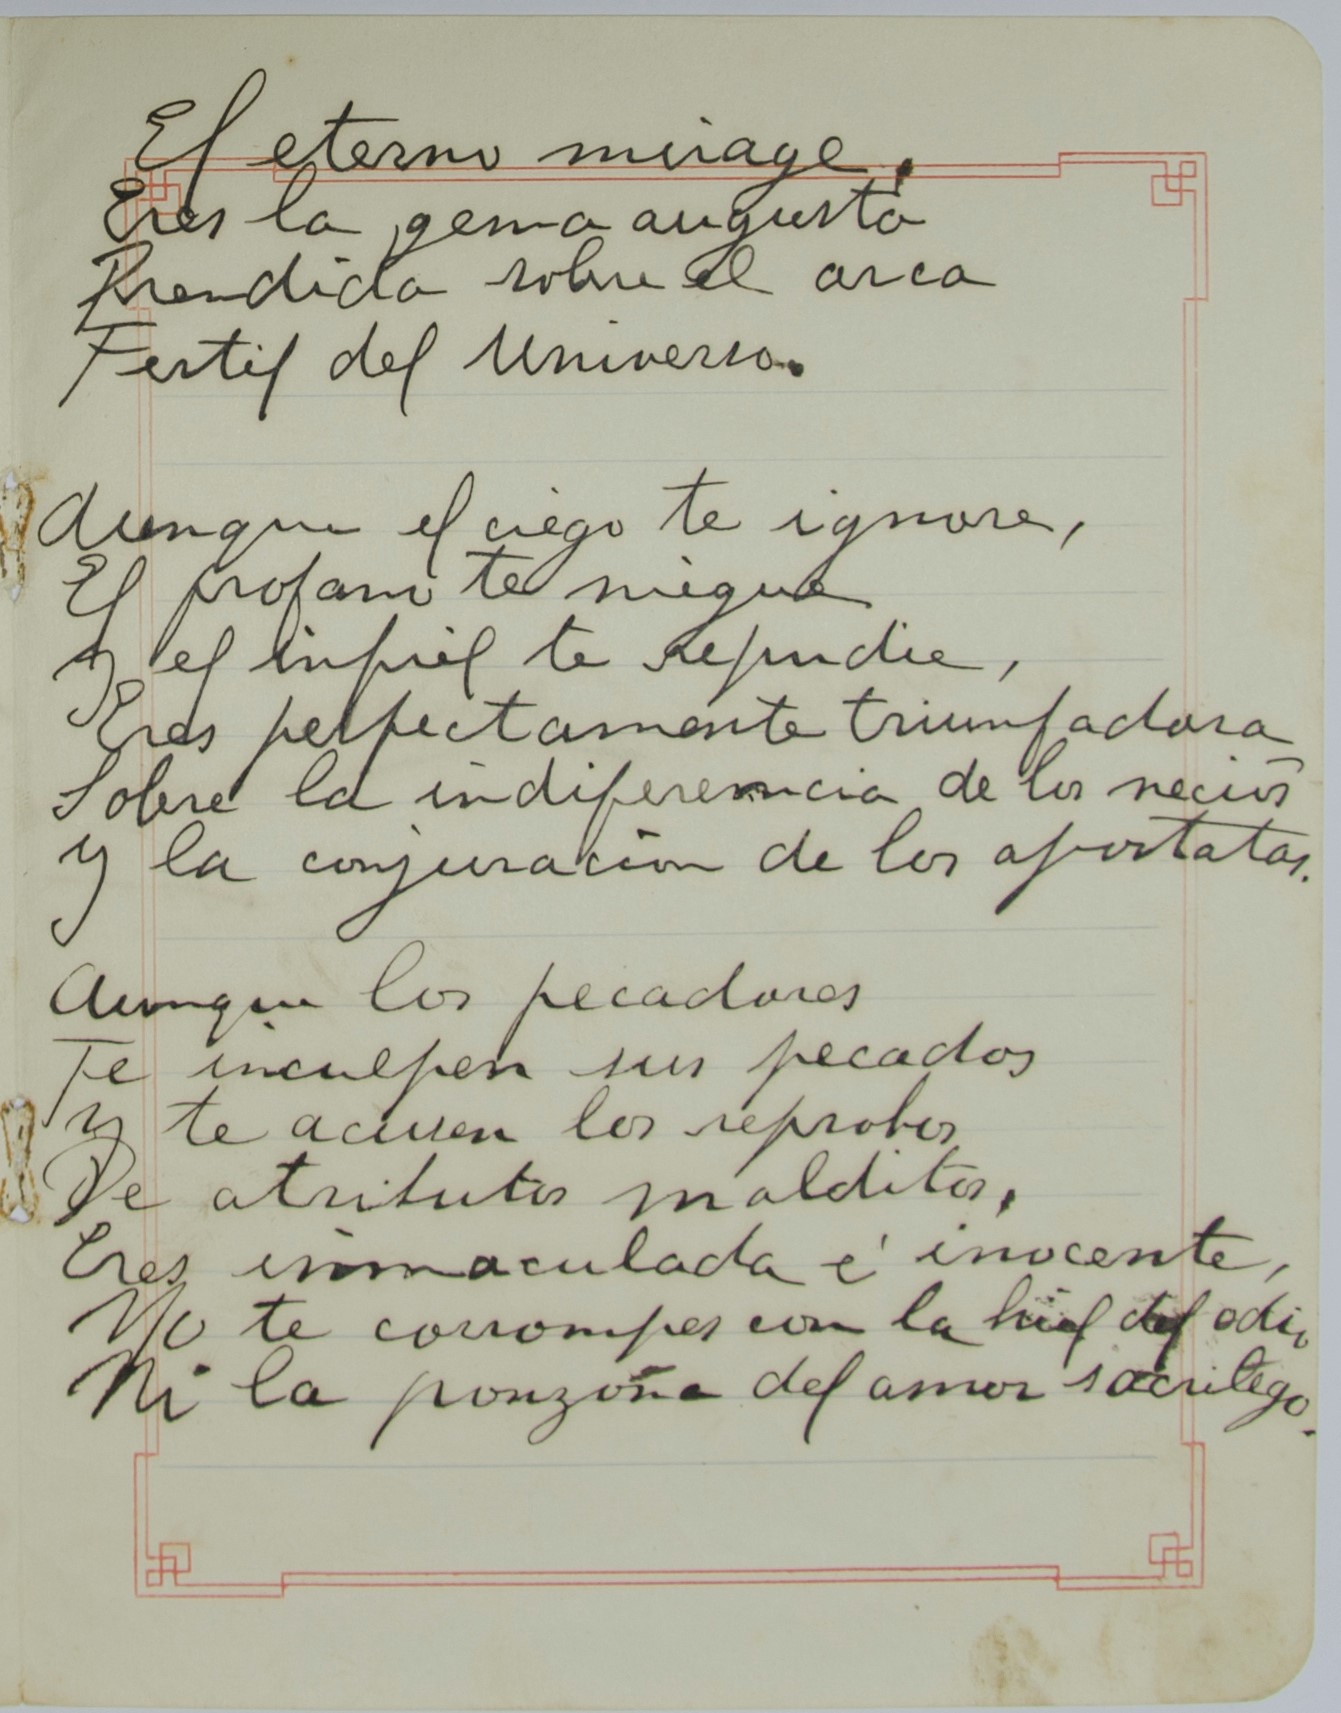 El eterno mirage.
Eres la gema augusta
Prendida sobre el arca
Fertil del Universo.
Aunque el ciego te ignore,
El profano te niegue
y el infiel te repudie,
Eres perfectamente triumfadora
Sobre la indiferenncia de los necios
y la conjuracion de los apostatas.
Aunque los pecadores
Te inculpen sus pecados
y te acusen los reprobos
De atributos malditos,
Eres inmaculada é inocente,
No te corrompes con la hiel del odio
Ni la ponzoña del amor sacrilego.